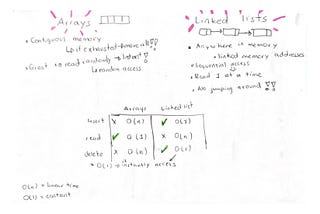 Arrays
• Contiguous memory
↳ if exhausted → move all!!
• Great to read randomly → instant!
↳ random access
Linked lists
• Anywhere in memory
→ linked memory addresses
• Sequential access
• Read 1 at a time
• No jumping around!!
Arrays Linked list
insert x O(n) ✓ O(1)
read ✓ O(1) x O(n)
delete x O(n) ✓ O(1)
* O(1) → instantly access
O(n) = linear time
O(1) = constant